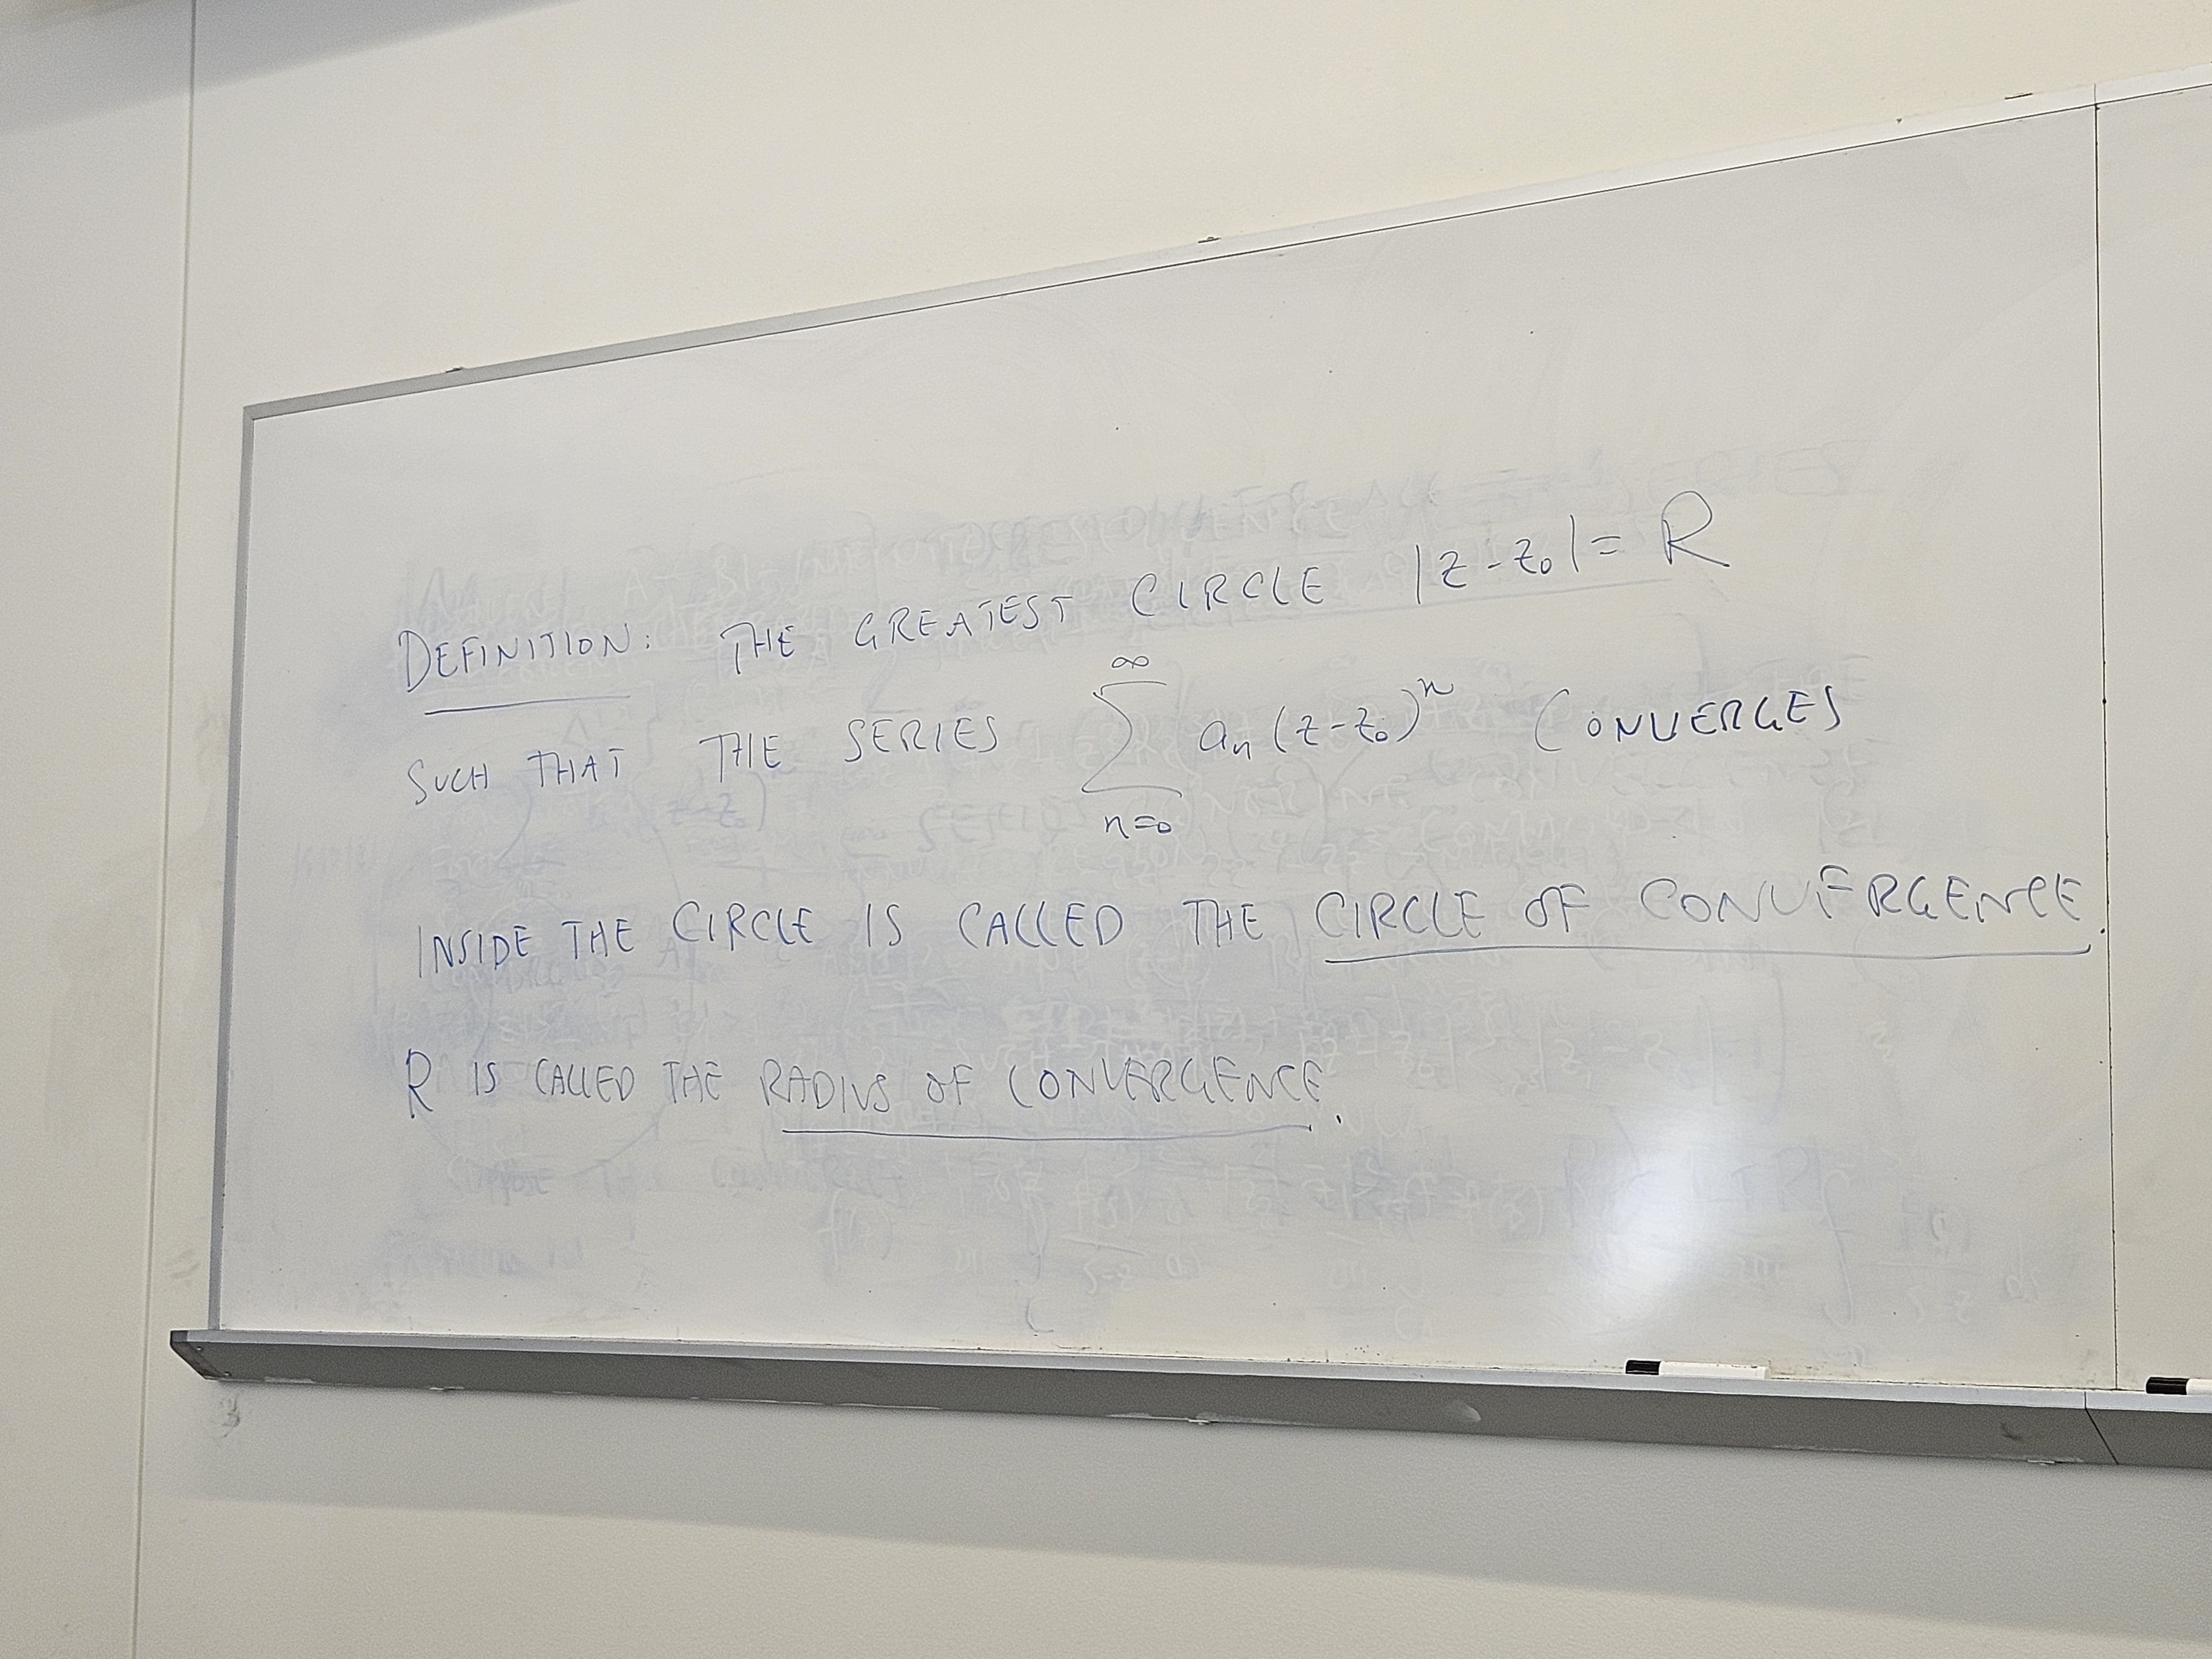 DEFINITION: THE GREATEST CIRCLE |z-z₀|= R
SUCH THAT THE SERIES ∑_{n=0}^{∞} aₙ(z-z₀)ⁿ CONVERGES
INSIDE THE CIRCLE IS CALLED THE CIRCLE OF CONVERGENCE.
R IS CALLED THE RADIUS OF CONVERGENCE.